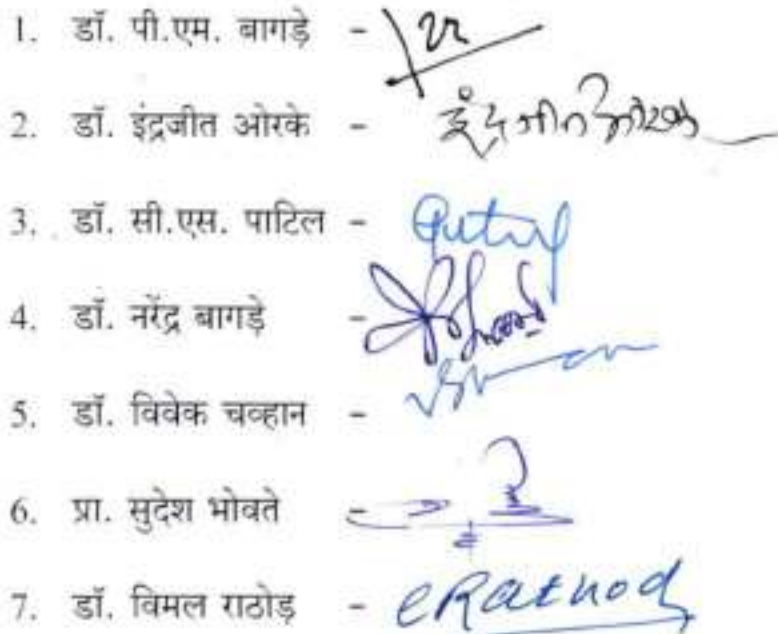 1. डॉ. पी.एम. बागड़े -
2. डॉ. इंद्रजीत ओरके - इंद्रजीत ओरके
3. डॉ. सी.एस. पाटिल -
4. डॉ. नरेंद्र बागड़े -
5. डॉ. विवेक चव्हान -
6. प्रा. सुदेश भोवते -
7. डॉ. विमल राठोड़ - eRathod